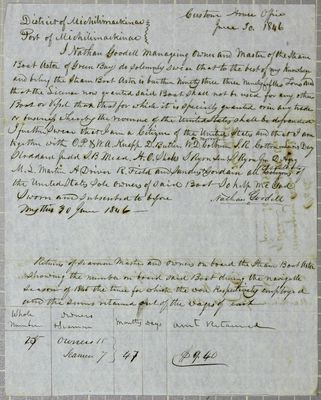 Custom House Office
District of Michilimackinac
June 30. 1846
Port of Michilimackinac
I Nathan Goodell Managing Owner and Master of the Steam
Boat Aster of Green Bay do solemnly swear that to the best of my knowledge
and belief the Steam Boat Aster is burthen Ninety three
that the License now granted said Boat shall not be used for any other
Boat or Vessel than that for which it is specially granted or in any trade
or business whereby the revenue of the United States shall be defrauded
I further swear that I am a Citizen of the United States and that I am
together with O.P. & N.A. Knapp D. Butler
B. Mead
M. L. Martin H Driver R. Field and all Citizens of
the United States Sole Owners of said Boat So help me God
Sworn and Subscribed to before Nathan Goodell
me this 30 June 1846
Return of Seamen Master and Owner on board the Steam Boat Aster
Showing the number on board said Boat during the navigable
Season of 1845 the time for which the were Respectively employed
and the Sums retained out of the Wages of each
Whole Number Owners Seamen Months Days amt Retained
Owners 11
Seamen 7 47 $9.40